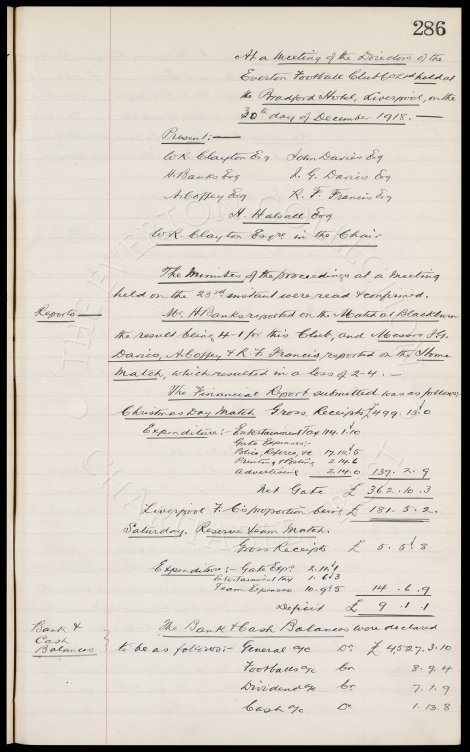 286
At a Meeting of the Directors of the
Everton Football Club Co Ld held at
the Bradford Hotel, Liverpool, on the
30th day of December 1918. —
Present:—
W.R. Clayton Esq John Davies Esq
H. Banks Esq J. G. Davies Esq
A. Coffey Esq R. F. Francis Esq
H. Halsall Esq
W.R. Clayton Esqre in the Chair
The Minutes of the proceedings at a meeting
held on the 23rd instant were read & confirmed.
Reports — Mr H Banks reported on the Match at Blackburn
the result being 4-1 for this Club, and Messrs J.G.
Davies, A Coffey & R. F. Francis reported on the Home
Match, which resulted in a loss of 2-4. —
The Financial Report submitted was as follows:-
Christmas Day Match Gross Receipts £499.13.0
Expenditure:- Entertainment Tax 114.1.10
Gate Expenses:-
Police, Referee, &c 17.12.5
Printing & Posting 2.14.6
Advertising 2.14.0 137.2.9
Net Gate £ 362.10.3
Liverpool F. C's proportion being £ 181.5.2.
Saturday. Reserve team Match.
Gross Receipts £ 5.5.8
Expenditure:- Gate Exps. 2.11.1
Entertainment Tax 1.6.3
Team Expenses 10.9.5 14.6.9
Deficit £ 9.1.1
Bank & Cash Balances The Bank & Cash Balances were declared
to be as follows:- General a/c Dr. £ 4,527.3.10
Footballs a/c Cr. 8.9.4
Dividend a/c Cr. 7.1.9
Cash a/c Dr 1.13.8
THE EVERTON COLLECTION
CHARITABLE TRUST